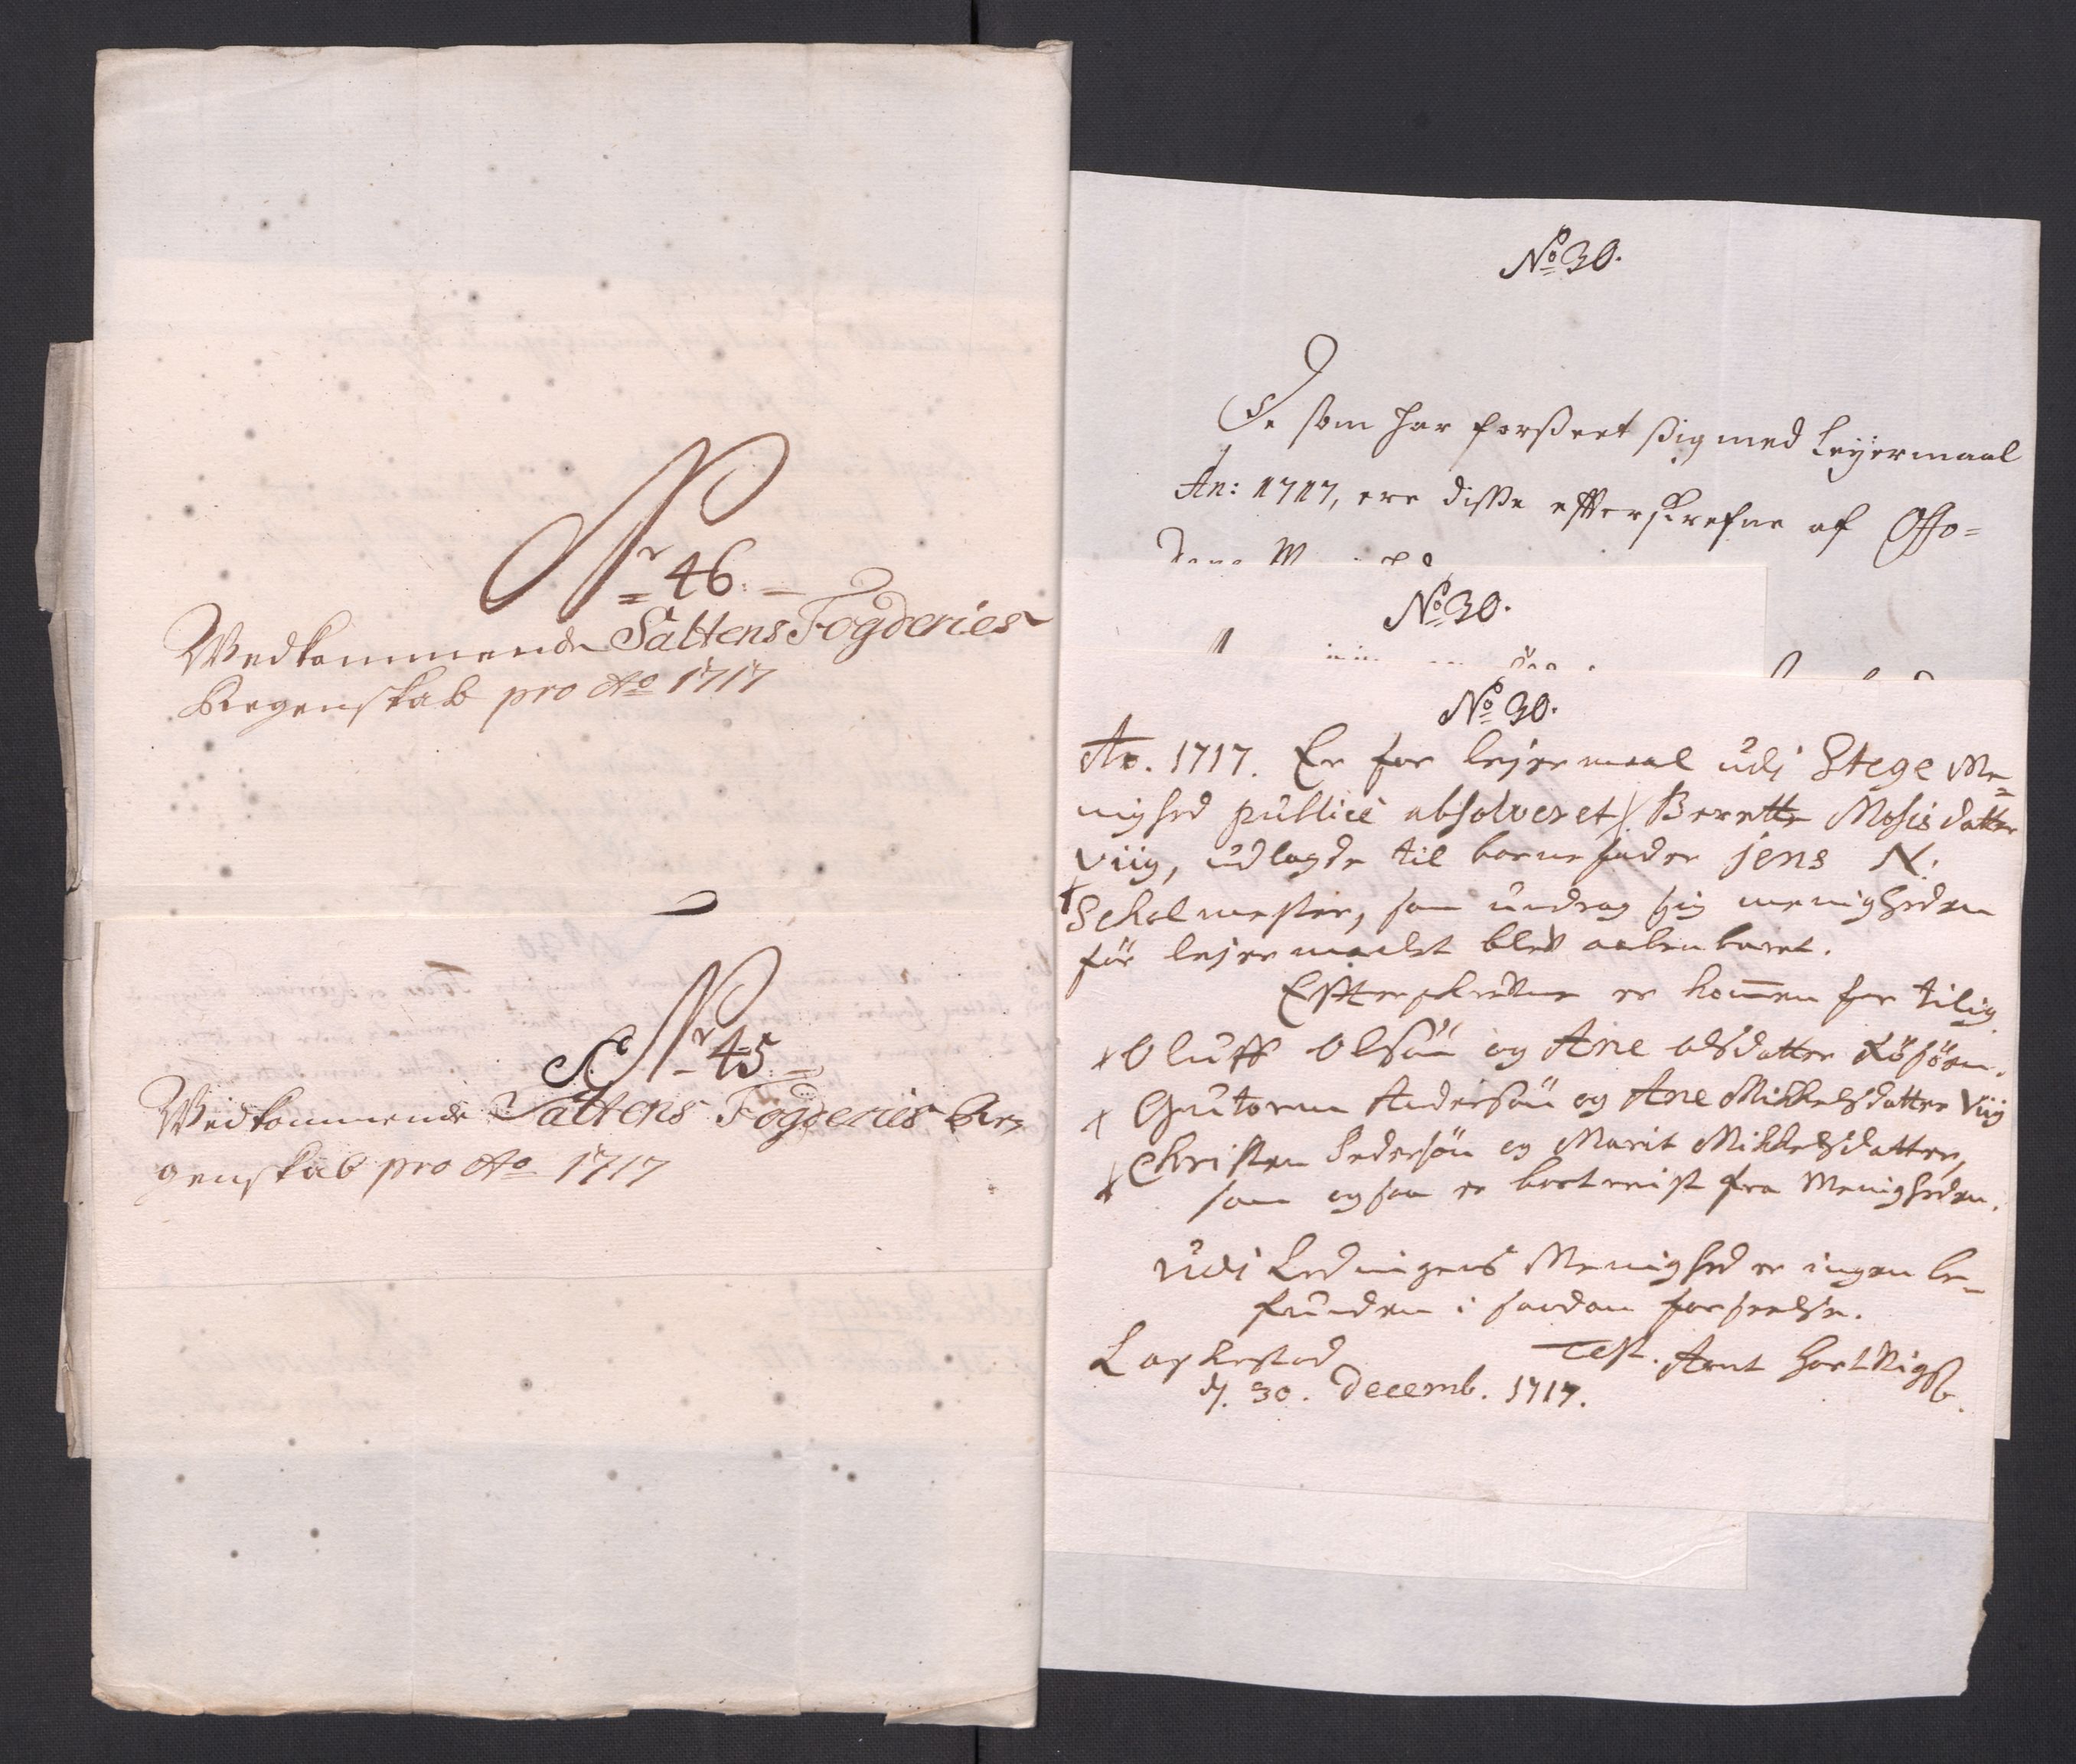 Nr 46.
Wedkommende Saltens Fogderies
Regenskab pro Ao 1717
Nr 45
Wedkommende Saltens Fogderies Re-
genskab pro Ao 1717
No 30.
De som har forsseet ssig med Leyermaal
An: 1717, ere disse efterskrefne af Offo=
No 30.
No 30.
Ao. 1717. Er for lejermaal udj Stege Me=
nighed publicè absolveret Berette Mosis datter
Viig, udlagde til barnefader Jens N.
Scholmester, som undrog sig menigheden
før lejermaalet blev aabenbaret.
Efterskrevne er kommen for tilig
Oluff Olsøn og Ane olsdatter
Guttorm Andersøn og Ane Mikkelsdatter Viig
Christen Pedersøn og Marit Mikkelsdatter,
som ogsaa er bortreist fra Menigheden.
Udi Lødingens Menighed er ingen be=
funden i saadan forseelse.
Laskestad
Test. Arnt Hartvigss.
d. 30. Decemb. 1717.